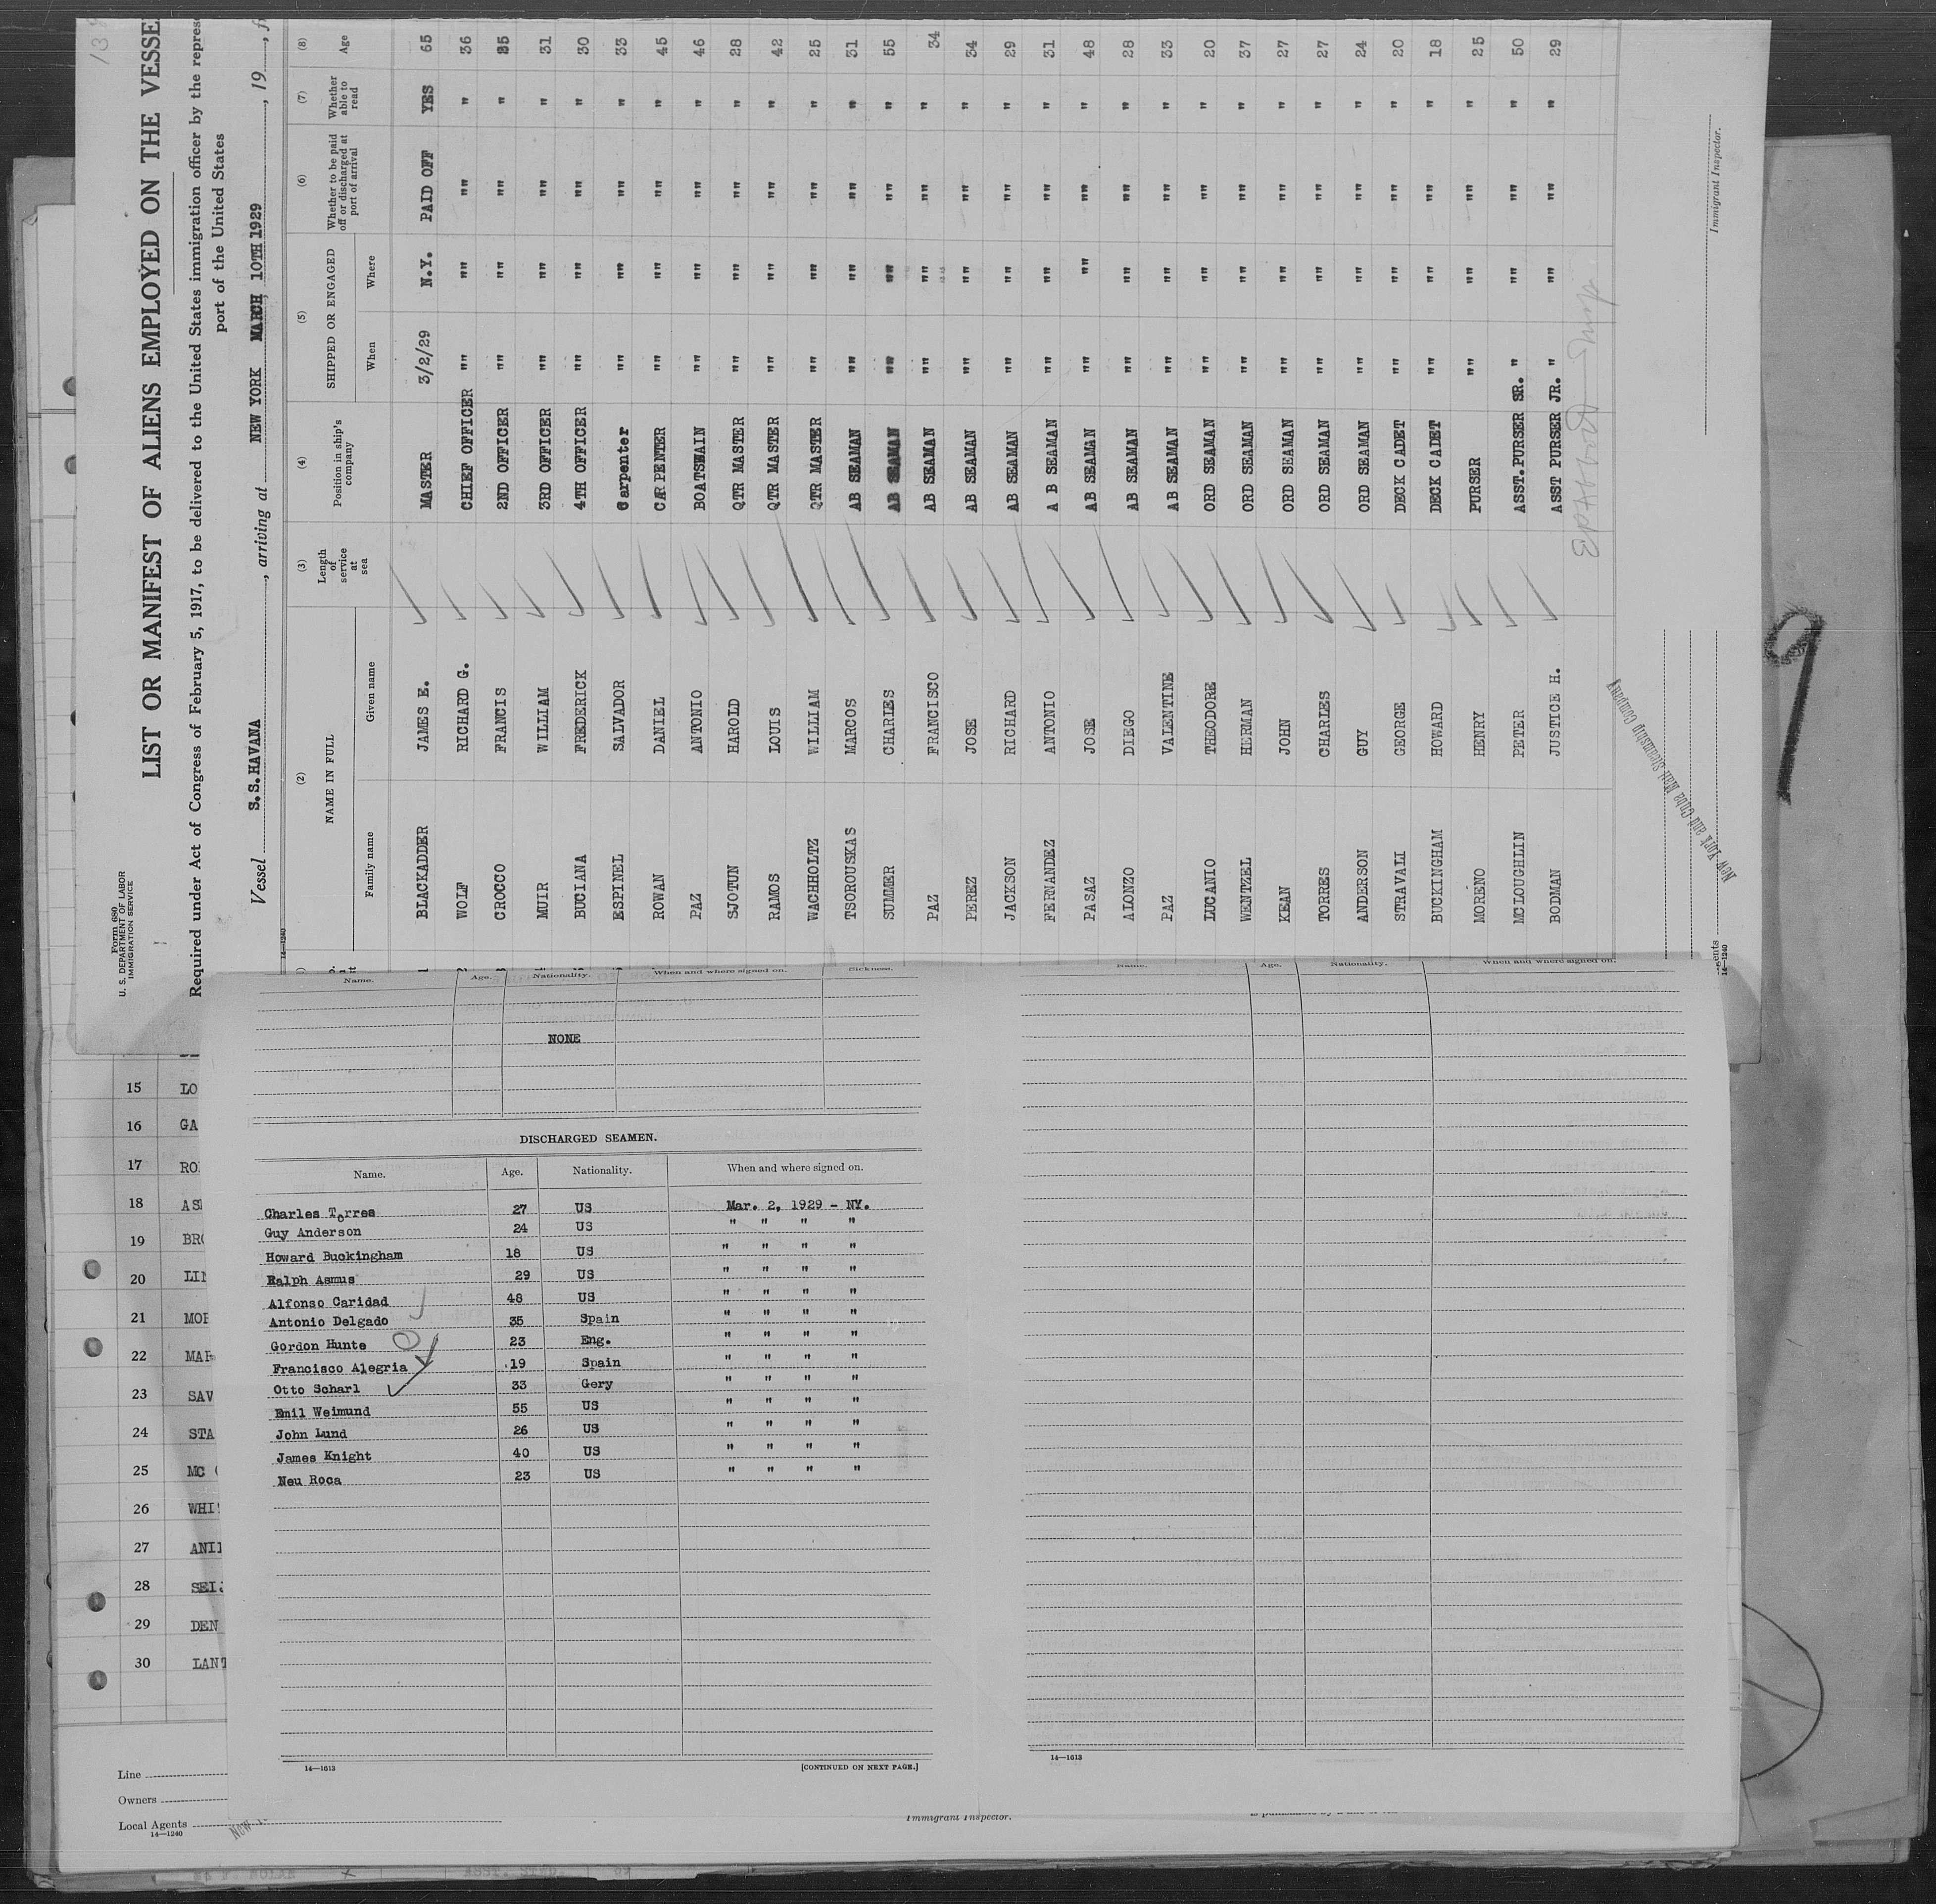 Form 680
U. S. DEPARTMENT OF LABOR
IMMIGRATION SERVICE
LIST OR MANIFEST OF ALIENS EMPLOYED ON THE VESSE
Required under Act of Congress of February 5, 1917, to be delivered to the United States immigration officer by the repres
port of the United States
Vessel S.S.HAVANA, arriving at NEW YORK MARCH 10TH 1929, 19
14—1240
(2) (3) (4) (5) (6) (7) (8)
NAME IN FULL Length of service at sea Position in ship's company SHIPPED OR ENGAGED Whether to be paid off or discharged at port of arrival Whether able to read Age
Family name Given name When Where
BLACKADDER JAMES E. MASTER 3/2/29 N.Y. PAID OFF YES 65
WOLF RICHARD G. CHIEF OFFICER "" "" "" " 36
CROCCO FRANCIS 2ND OFFICER "" "" "" " 25
MUIR WILLIAM 3RD OFFICER "" "" "" " 31
BUCIANA FREDERICK 4TH OFFICER "" "" "" " 30
ESPINEL SALVADOR Carpenter "" "" "" " 33
ROWAN DANIEL CARPENTER "" "" "" " 45
PAZ ANTONIO BOATSWAIN "" "" "" " 46
SJOTUN HAROLD QTR MASTER "" "" "" " 28
RAMOS LOUIS QTR MASTER "" "" "" " 42
WACHHOLTZ WILLIAM QTR MASTER "" "" "" " 25
TSOROUSKAS MARCOS AB SEAMAN "" "" "" " 31
SUMMER CHARLES AB SEAMAN "" "" "" " 55
PAZ FRANCISCO AB SEAMAN "" "" "" " 34
PEREZ JOSE AB SEAMAN "" "" "" " 34
JACKSON RICHARD AB SEAMAN "" "" "" " 29
FERNANDEZ ANTONIO A B SEAMAN "" "" "" " 31
PASAZ JOSE AB SEAMAN "" "" "" " 48
ALONZO DIEGO AB SEAMAN "" "" "" " 28
PAZ VALENTINE AB SEAMAN "" "" "" " 33
LUCANIO THEODORE ORD SEAMAN "" "" "" " 20
WENTZEL HERMAN ORD SEAMAN "" "" "" " 37
KEAN JOHN ORD SEAMAN "" "" "" " 27
TORRES CHARLES ORD SEAMAN "" "" "" " 27
ANDERSON GUY ORD SEAMAN "" "" "" " 24
STRAVALI GEORGE DECK CADET "" "" "" " 20
BUCKINGHAM HOWARD DECK CADET "" "" "" " 18
MORENO HENRY PURSER "" "" "" " 25
MCLOUGHLIN PETER ASST.PURSER SR. " "" "" " 50
BODMAN JUSTICE H. ASST PURSER JR. " "" "" " 29
New York and Cuba Mail Steamship Company
Immigrant Inspector.
14—1240
9
Name. Age. Nationality. When and where signed on. Sickness.
NONE
DISCHARGED SEAMEN.
Name. Age. Nationality. When and where signed on.
Charles Torres 27 US Mar. 2, 1929 - NY.
Guy Anderson 24 US " " " "
Howard Buckingham 18 US " " " "
Ralph Asmus 29 US " " " "
Alfonso Caridad 48 US " " " "
Antonio Delgado 35 Spain " " " "
Gordon Hunte 23 Eng. " " " "
Francisco Alegria 19 Spain " " " "
Otto Scharl 33 Gery " " " "
Emil Weimund 55 US " " " "
John Lund 26 US " " " "
James Knight 40 US " " " "
Neu Roca 23 US " " " "
14—1613
[CONTINUED ON NEXT PAGE.]
Name. Age. Nationality. When and where signed on.
14—1613
15 LO
16 GA
17 RO
18 AS
19 BRO
20 LIN
21 MOR
22 MAR
23 SAV
24 STA
25 MC
26 WHI
27 ANI
28 SEI
29 DEN
30 LANT
Line
Owners
Local Agents
14—1240
New
Immigrant Inspector.